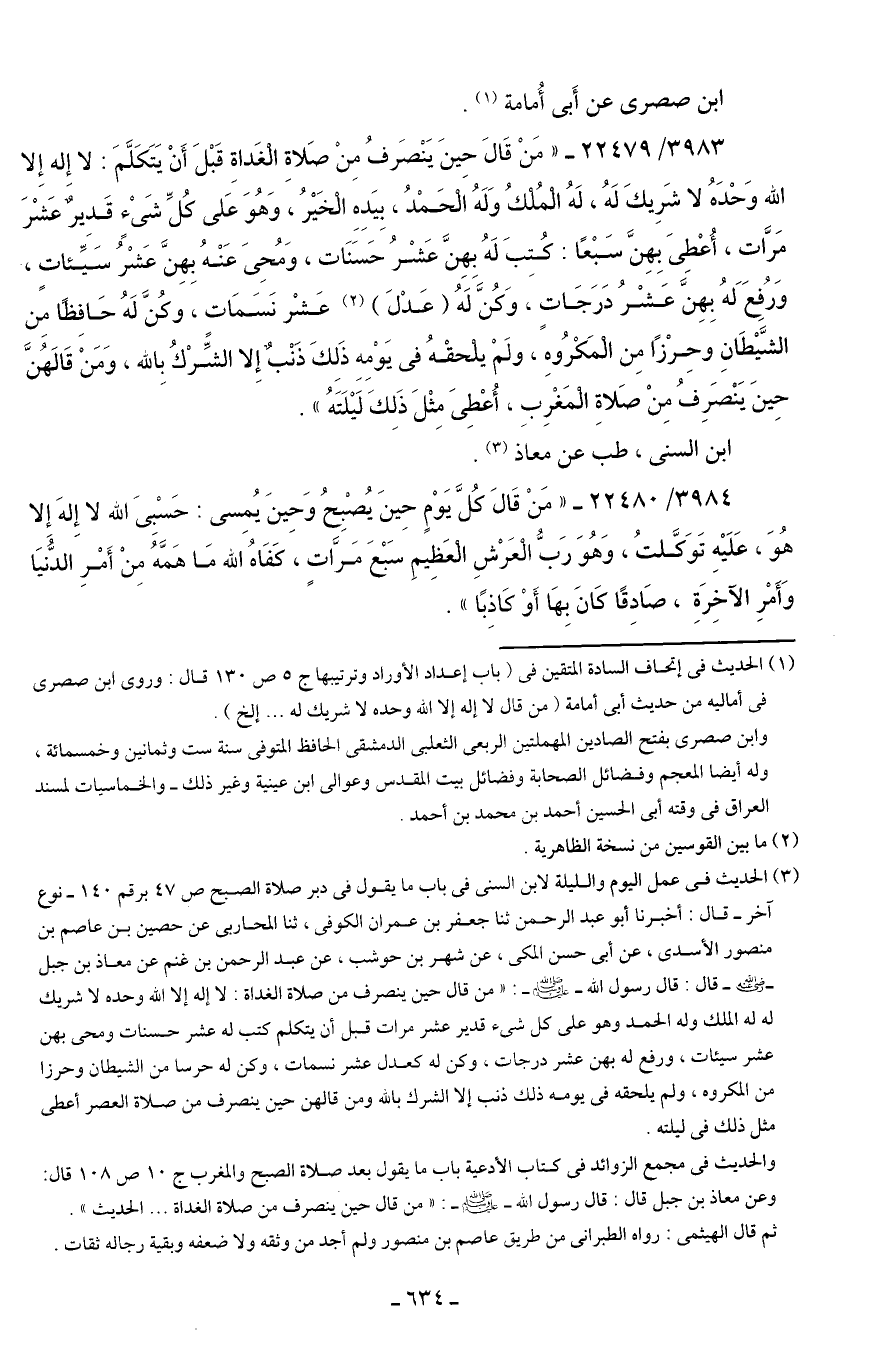 ابن صصرى عن أَبى أُمامة (١) .
٢٢٤٧٩/٣٩٨٣ ـ « مَنْ قَالَ حِينَ يَنْصَرِفُ مِنْ صَلاَةِ الْغَدَاةِ قَبْلَ أَنْ يَتَكَلَّمَ : لا إله إلا
الله وَحْدَهُ لا شَرِيكَ لَهُ ، لَهُ الْمُلْكُ وَلَهُ الْحَمْدُ ، بِيَدِهِ الْخَيْرُ ، وَهُوَ عَلَى كُلِّ شَىْءٍ قَدِيرٌ عَشْرَ
مَرَّات ، أُعْطِىَ بِهِنَّ سَبْعًا : كُتِبَ لَهُ بِهِنَّ عَشْرُ حَسَنَات ، وَمُحِىَ عَنْهُ بِهِنَّ عَشْرُ سَيِّئات ،
وَرُفِعَ لَهُ بِهِنَّ عَشْرُ دَرَجَات ، وَكُنَّ لَهُ ( عَدْلَ ) (٢) عَشْرِ نَسَمَات ، وَكُنَّ لَهُ حَافِظًا من
الشَّيْطَان وحِرْزًا من الْمَكْرُوه ، ولَمْ يلحقْهُ فى يَوْمِه ذَلِكَ ذَنْبٌ إلا الشِّرْكُ بالله ، وَمَنْ قَالَهُنَّ
حِينَ يَنْصَرِفُ مِنْ صَلاَةِ الْمَغْرِبِ ، أُعْطِىَ مِثْلَ ذَلِكَ لَيْلَتَهُ » .
ابن السنى ، طب عن معاذ (٣) .
٢٢٤٨٠/٣٩٨٤ ـ « مَنْ قَالَ كُلَّ يَوْمٍ حِينَ يُصْبِحُ وَحِينَ يُمسِى : حَسْبِىَ الله لا إلهَ إلا
هُوَ ، عَلَيْهِ تَوَكَّلتُ ، وَهُوَ رَبُّ الْعَرْشِ الْعَظِيمِ سَبْعَ مَرَّاتٍ ، كَفَاهُ الله مَا هَمَّهُ مِنْ أَمْرِ الدُّنْيَا
وأَمْرِ الآخِرَةِ ، صَادِقًا كَانَ بِهَا أَوْ كَاذِبًا » .
(١) الحديث فى إتحاف السادة المتقين فى ( باب إعداد الأوراد وترتيبها ج ٥ ص ١٣٠ قال : وروى ابن صصرى
فى أماليه من حديث أبى أمامة ( من قال لا إله إلا الله وحده لا شريك له ... إلخ ) .
وابن صصرى بفتح الصادين المهملتين الربعى الثعلبى الدمشقى الحافظ المتوفى سنة ست وثمانين وخمسمائة ،
وله أيضا المعجم وفضائل الصحابة وفضائل بيت المقدس وعوالى ابن عينية وغير ذلك ـ والخماسيات لمسند
العراق فى وقته أبى الحسين أحمد بن محمد بن أحمد .
(٢) ما بين القوسين من نسخة الظاهرية .
(٣) الحديث فى عمل اليوم والليلة لابن السنى فى باب ما يقول فى دبر صلاة الصبح ص ٤٧ برقم ١٤٠ ـ نوع
آخر ـ قال : أخبرنا أبو عبد الرحمن ثنا جعفر بن عمران الكوفى ، ثنا المحاربى عن حصين بن عاصم بن
منصور الأسدى ، عن أبى حسن المكى ، عن شهر بن حوشب ، عن عبد الرحمن بن غنم عن معاذ بن جبل
ـ رضي الله عنه ـ قال : قال رسول الله ـ صلى الله عليه وسلم ـ : « من قال حين ينصرف من صلاة الغداة : لا إله إلا الله وحده لا شريك
له له الملك وله الحمد وهو على كل شىء قدير عشر مرات قبل أن يتكلم كتب له عشر حسنات ومحى بهن
عشر سيئات ، ورفع له بهن عشر درجات ، وكن له كعدل عشر نسمات ، وكن له حرسا من الشيطان وحرزا
من المكروه ، ولم يلحقه فى يومه ذلك ذنب إلا الشرك بالله ومن قالهن حين ينصرف من صلاة العصر أعطى
مثل ذلك فى ليلته .
والحديث فى مجمع الزوائد فى كتاب الأدعية باب ما يقول بعد صلاة الصبح والمغرب ج ١٠ ص ١٠٨ قال:
وعن معاذ بن جبل قال : قال رسول الله ـ صلى الله عليه وسلم ـ : « من قال حين ينصرف من صلاة الغداة ... الحديث » .
ثم قال الهيثمى : رواه الطبرانى من طريق عاصم بن منصور ولم أجد من وثقه ولا ضعفه وبقية رجاله ثقات .
ـ ٦٣٤ ـ